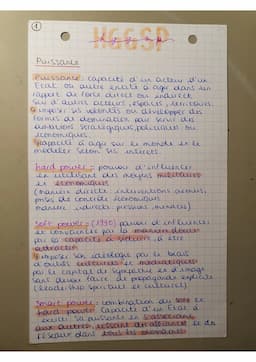 1
HGGSP
Puissance
Puissance : capacité d'un acteur d'un
Etat ou autre entité à agir dans un
rapport de force direct ou indirect
sur d'autres acteurs, espaces, territoires.
imposer ses volontés ou développer des
formes de domination pour servir des
ambitions stratégiques, politiques ou
économiques.
capacité à agir sur le monde et le
modeler selon ses intérêts.
hard power : pouvoir d'influencer
en utilisant des moyens militaires
et économiques
(manière directe : interventions armées,
prises de contrôle économiques
manière indirecte : pressions, menaces)
soft power : (1990) pouvoir d'influencer
et contraindre par la manière douce
par sa capacité à séduire, à être
attractif
imposer son idéologie par le biais
d'outils culturels et médiatiques
par le capital de sympathie et d'image
sans devoir faire de propagande explicite
(leadership spirituel et culturel)
smart power : combinaison du soft et
hard power. Capacité d'un Etat à
exister sa puissance en s'associant
aux autres, restant attaché et de
réseaux dans tous les domaines